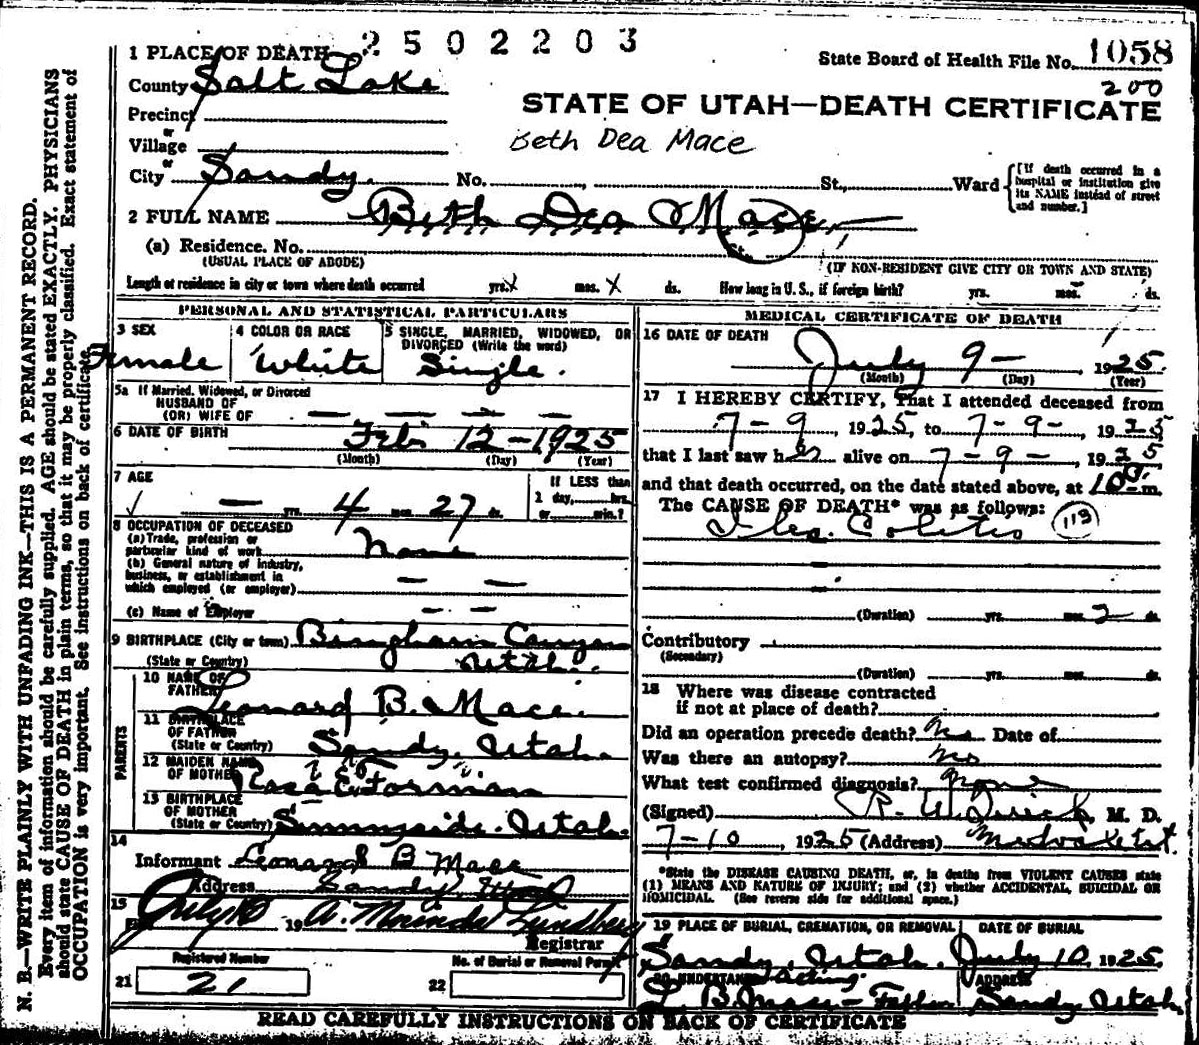 2502203
1 PLACE OF DEATH
State Board of Health File No. 1058
County Salt Lake
200
STATE OF UTAH—DEATH CERTIFICATE
Precinct
or
Village
Beth Dea Mace
or
City Sandy. No. , St., Ward
[If death occurred in a hospital or institution give its NAME instead of street and number.]
2 FULL NAME Beth Dea Mace,
(a) Residence. No. St.
(USUAL PLACE OF ABODE) (IF NON-RESIDENT GIVE CITY OR TOWN AND STATE)
Length of residence in city or town where death occurred yrs. x mos. x ds. How long in U. S., if foreign birth? yrs. mos. ds.
PERSONAL AND STATISTICAL PARTICULARS
3 SEX
Female
4 COLOR OR RACE
White
5 SINGLE, MARRIED, WIDOWED, OR DIVORCED (Write the word)
Single.
5a If Married, Widowed, or Divorced
HUSBAND OF
(OR) WIFE OF — — — —
6 DATE OF BIRTH Feb. 12-1925
(Month) (Day) (Year)
7 AGE
✓ — yrs. 4 mos. 27 ds.
If LESS than
1 day, hrs.
or min.?
8 OCCUPATION OF DECEASED
(a) Trade, profession or
particular kind of work None
(b) General nature of industry,
business, or establishment in
which employed (or employer) — —
(c) Name of Employer — —
9 BIRTHPLACE (City or town) Bingham Canyon
(State or Country) Utah.
PARENTS
10 NAME OF
FATHER Leonard B. Mace.
11 BIRTHPLACE
OF FATHER
(State or Country) Sandy, Utah.
12 MAIDEN NAME
OF MOTHER Rosa E. Forman
13 BIRTHPLACE
OF MOTHER
(State or Country) Sunnyside, Utah.
14
Informant Leonard B Mace
Address Sandy Utah
15
July 10 19 A. Morinda Lundberg
Registrar
Registered Number
21 21
No. of Burial or Removal Permit
22
MEDICAL CERTIFICATE OF DEATH
16 DATE OF DEATH
July 9 — 1925.
(Month) (Day) (Year)
17 I HEREBY CERTIFY, That I attended deceased from
7-9, 1925, to 7-9-, 1925
that I last saw her alive on 7-9-, 1925
and that death occurred, on the date stated above, at 10 m.
The CAUSE OF DEATH* was as follows:
Ileo. Colitis (113)
(Duration) yrs. mos. 2 ds.
Contributory
(Secondary)
(Duration) yrs. mos. ds.
18 Where was disease contracted
if not at place of death?
Did an operation precede death? No Date of
Was there an autopsy? no
What test confirmed diagnosis?
(Signed) M. D.
7-10, 1925 (Address) Midvale Ut.
*State the DISEASE CAUSING DEATH, or, in deaths from VIOLENT CAUSES state
(1) MEANS AND NATURE OF INJURY; and (2) whether ACCIDENTAL, SUICIDAL OR
HOMICIDAL. (See reverse side for additional space.)
19 PLACE OF BURIAL, CREMATION, OR REMOVAL
Sandy, Utah.
DATE OF BURIAL
July 10 1925.
20 UNDERTAKER acting.
L. B. Mace - Father
ADDRESS
Sandy Utah
READ CAREFULLY INSTRUCTIONS ON BACK OF CERTIFICATE
N. B.—WRITE PLAINLY WITH UNFADING INK—THIS IS A PERMANENT RECORD.
Every item of information should be carefully supplied. AGE should be stated EXACTLY. PHYSICIANS
should state CAUSE OF DEATH in plain terms, so that it may be properly classified. Exact statement of
OCCUPATION is very important. See instructions on back of certificate.